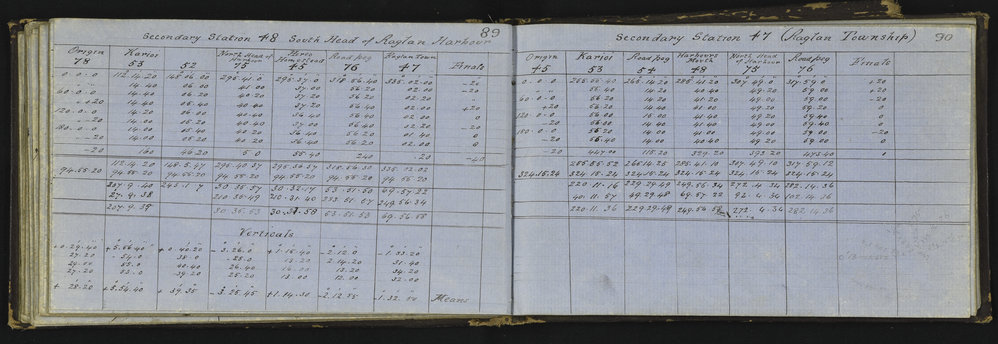 89
Secondary Station 48 South Head of Raglan Harbour
Origin Karioi North Head of Harbour Horea Homestead Road peg Raglan Town Errata
78 53 52 75 45 76 47
0.0.0 112.14.20 295.41.0 295.37.0 335.02.00
14.40 06.00 41.00 37.00 56.20 02.00 -20
60.0.0 14.40 06.20 40.20 37.20 56.20 02.20
14.40 05.40 40.40 37.20 56.40 02.00 +20
120.0.0 14.20 06.00 40.40 36.40 56.40 02.00 0
14.00 05.40 40.20 37.00 56.40 02.20 -20
180.0.0 14.00 05.40 40.20 36.40 56.20 01.40 0
-20 14.00 05.20 40.20 36.40 56.20 02.00 0
-20 160 46.20 5.0 55.40 240 .20 -40
112.14.20 148.5.47 295.40.37 335.02.02
94.55.20 94.55.20 94.55.20 94.55.20 94.55.20 94.55.20 94.55.20
207.9.40 243.1.7 30.35.57 30.32.17 53.51.50 69.57.22
27.9.38 210.35.49 210.31.40 233.51.57 249.56.34
207.9.39 30.35.53 30.31.58 53.51.53 69.56.58
Verticals
+0.29.40 +5.56.40 +0.40.20 -3.26.0 +1.15.40 -2.12.0 -1.33.20
27.20 54.0 38.0 25.0 13.20 2.14.20 31.40
53.0 40.40 26.40 13.20 34.20
27.20 39.20 25.20 13.00 12.00 32.00
+28.20 +5.54.40 +39.35 -3.25.45 +1.14.30 -2.12.55 -1.32.50 Means
Secondary Station 47 (Raglan Township) 90
Origin Karioi Road peg Harbours Mouth North Head of Harbour Road peg Errata
45 53 54 48 75 76
0.0.0 265.14.20 285.41.20 307.49.0 317.59.0 +20
56.40 14.20 40.40 49.20 59.00 +20
60.0.0 56.20 14.20 41.20 49.00 59.20 0
56.20 14.40 41.00 49.00 59.20 0
120.0.0 56.00 15.00 41.40 49.20 59.40 0
-20 56.00 14.40 41.40 49.00 59.40 0
180.0.0 56.20 14.00 41.00 49.20 59.00 -20
-20 56.20 14.40 40.40 49.00 59.00 0
-20 447.00 115.20 329.20 392.20 473.40 0
255.55.52 265.14.25 285.41.10 307.49.10 317.59.12
324.15.24 324.15.24 324.15.24 324.15.24 324.15.24 324.15.24
220.11.16 229.29.49 249.56.34 272.4.34 282.14.36
40.11.57 49.29.48 69.57.22 92.4.34 102.14.36
220.11.36 229.29.49 249.56.58 272.4.34 282.14.36